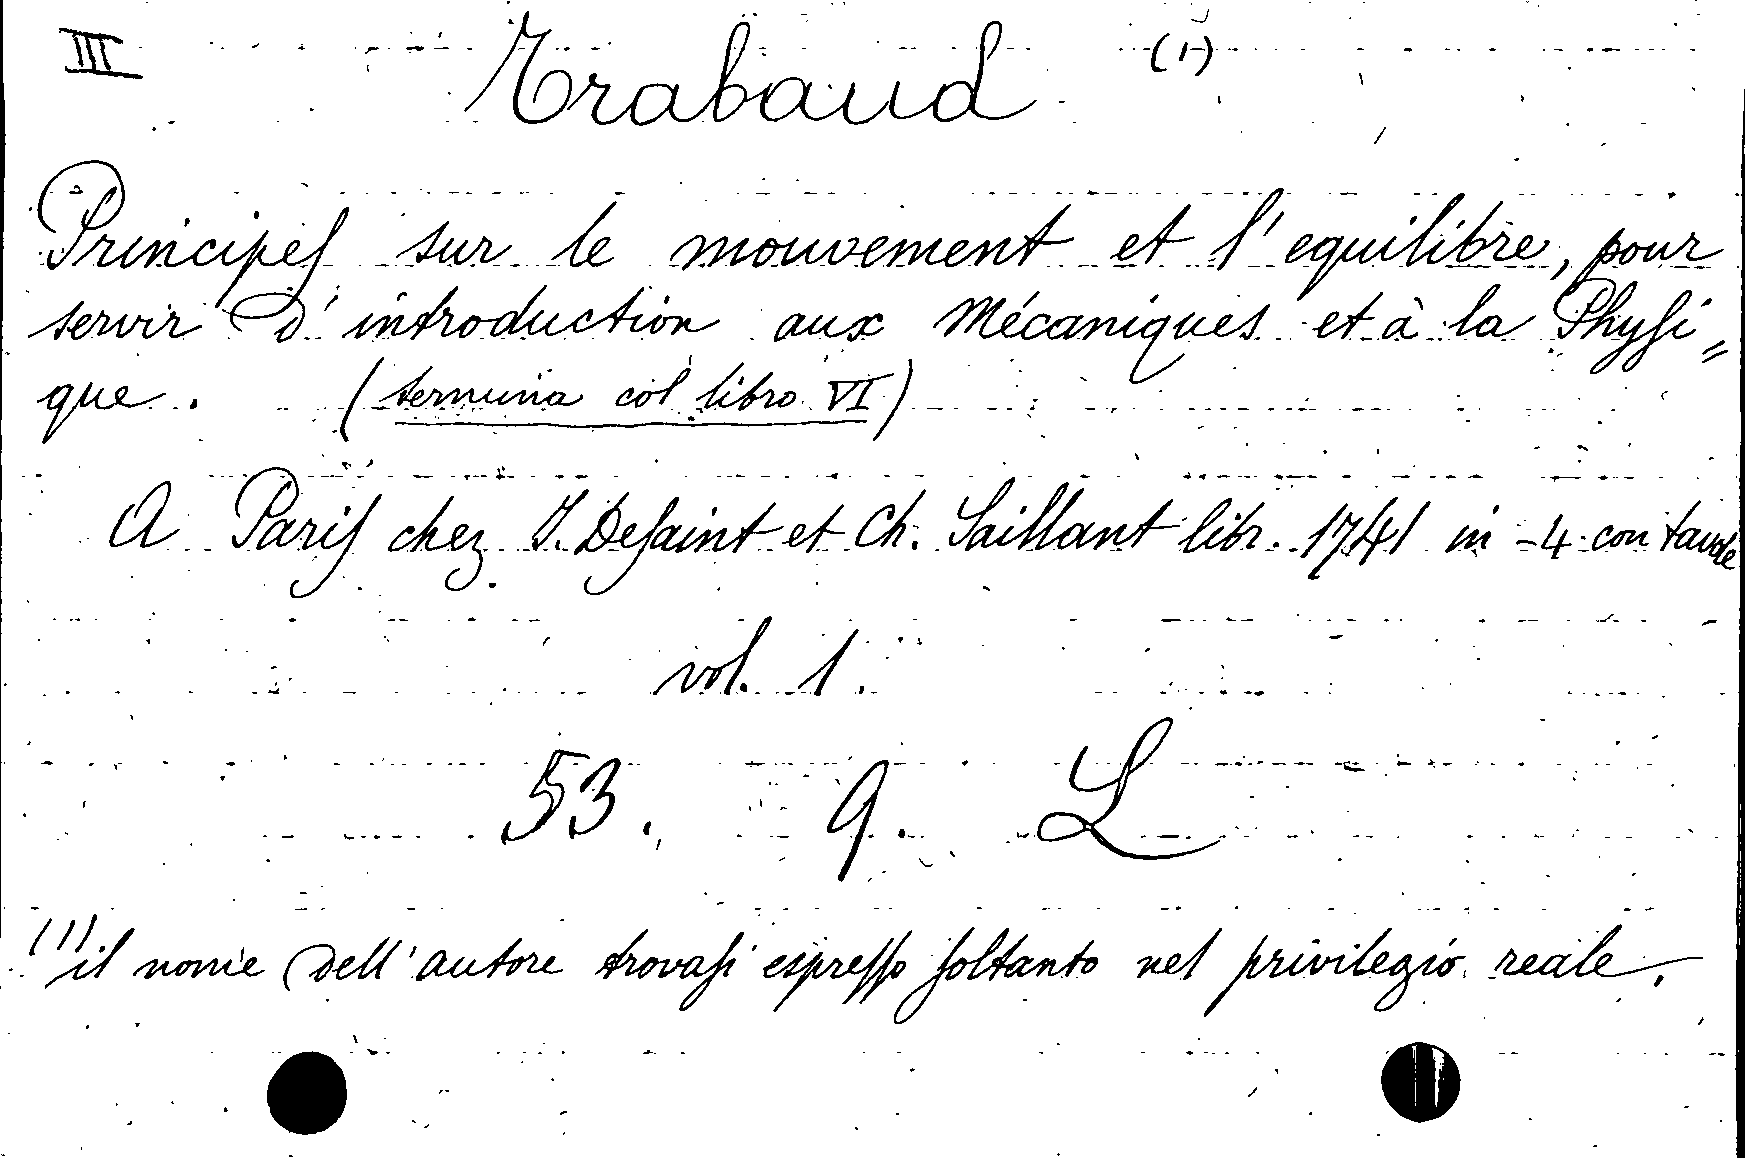 III Trabaud (1)
Principes sur le mouvement et l'equilibre, pour
servir d'introduction aux Mécaniques et à la Physi=
que. (termina col libro VI)
A Paris chez J. Desaint et Ch. Saillant libr. 1741 in-4 con tavole
vol. 1.
53. 9. L
(1) il nome dell'autore trovasi espresso soltanto nel privilegio reale.